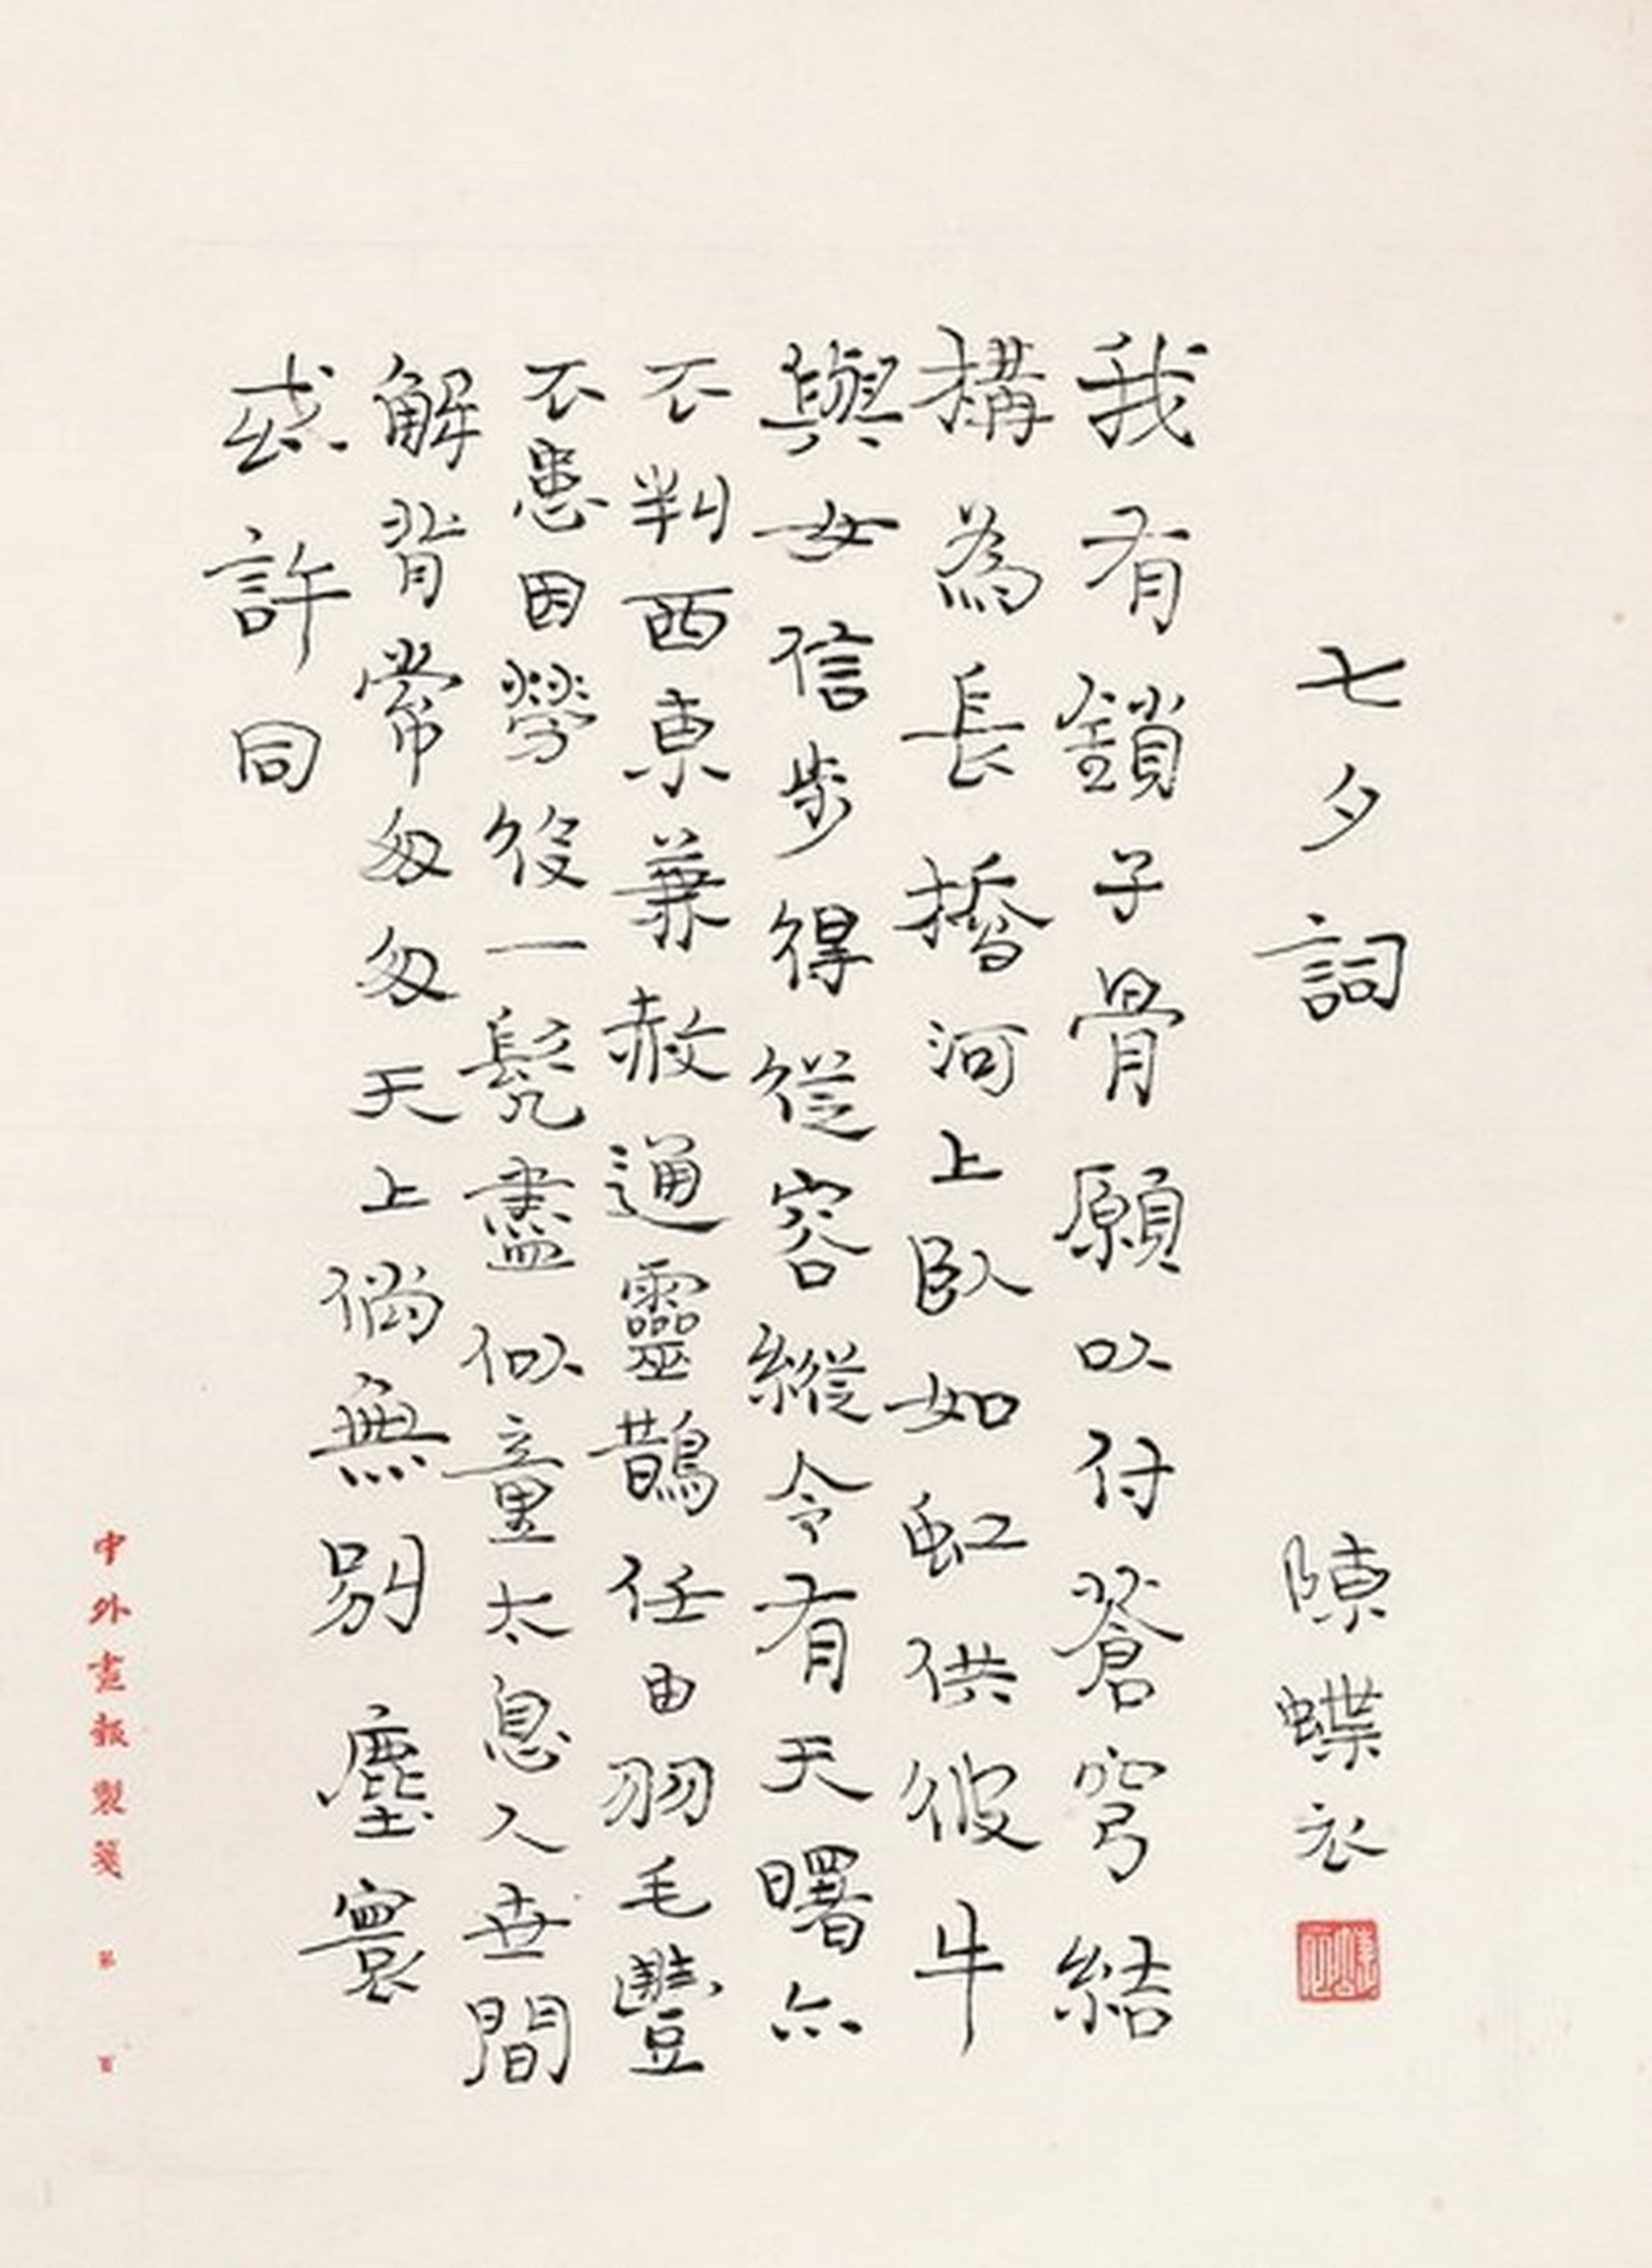 七夕詞 陳蝶衣
我有鎖子骨願以付蒼穹結
構為長橋河上臥如虹供彼牛
與女信步得從容縱令有天曙亦
不判西東兼赦通靈鵲任由羽毛豐
不患因勞役一髡盡似童太息人世間
解背常匆匆天上倘無別塵寰
或許同
中外畫報製箋